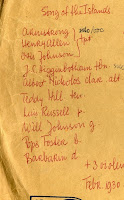 Song of the Islands.
Armstrong voc/tp
Henry Allen tpt
Otis Johnson "
J.C. Higginbotham tbn.
Albert Nicholas clar. alt
Teddy Hill tn
Luis Russell p
Will Johnson g
Pops Foster b.
Barbarin d.
+ 3 violins
Febr. 1930